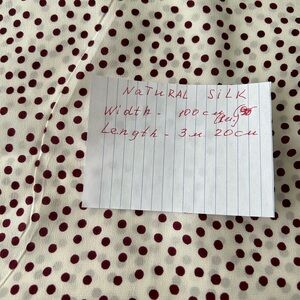 NATURAL SILK
Width - 100 см
Length - 3 м 20 см